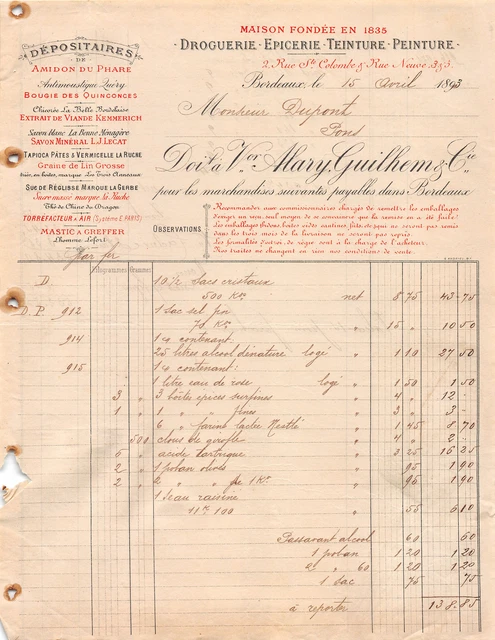 MAISON FONDÉE EN 1835
DROGUERIE - EPICERIE - TEINTURE - PEINTURE
2, Rue Ste Colombe & Rue Neuve, 3 & 5.
Bordeaux, le 15 avril 1893
Monsieur Dupont
Pons
Doit à Vor Alary, Guilhem & Cie
pour les marchandises suivantes payables dans Bordeaux
DÉPOSITAIRES
DE
AMIDON DU PHARE
Antimoustique Query
BOUGIE DES QUINCONCES
Chicorée La Belle Bordelaise
EXTRAIT DE VIANDE KEMMERICH
Savon blanc La Bonne Ménagère
SAVON MINÉRAL L.J. LECAT
TAPIOCA PÂTES & VERMICELLE LA RUCHE
Graine de Lin Grosse
en boîtes, marque Les Trois Anneaux
SUC DE RÉGLISSE MARQUE LA GERBE
Sucre casse marque la Ruche
Thé de Chine du Dragon
TORRÉFACTEUR À AIR (Système E. PARIS)
MASTIC À GREFFER
Lhomme Lefort
OBSERVATIONS
Recommander aux commissionnaires chargés de remettre les emballages
d'exiger un reçu, seul moyen de se convaincre que la remise en a été faite.
Les emballages bidons, boîtes vides, mastines, fûts, etc. qui ne seront pas remis
dans les trois mois de la livraison ne seront pas repris.
Les formalités d'octroi, de régie sont à la charge de l'acheteur.
Nos traites ne changent en rien nos conditions de vente.
Par fer
Kilogrammes Grammes
D. 10 1/2 sacs cristaux
500 Kos net 5 75 43 75
D. P. 912 1 sac sel pin
70 Kos " 15 " 10 50
914 1 co contenant
25 litres alcool dénaturé logé " 1 10 27 50
915 1 co contenant :
1 litre eau de rose logé " 1 50 1 50
3 " 3 boîtes épices surfines " 4 " 12 -
1 " 1 " " fines " 3 " 3 -
6 " farine lactée Nestlé " 1 45 8 70
500 clous de girofle " 4 " 2 -
5 " acide tartrique " 3 25 16 25
2 " 1 poban olives " 95 1 90
2 " 2 " " de 1 Ko " 95 1 90
1 seau raisiné
11 Ko 100 " 55 6 10
Passavant alcool 60 60
1 poban 1 20 1 20
2 " " 60 1 20 1 20
1 sac 75 75
à reporter 138.85